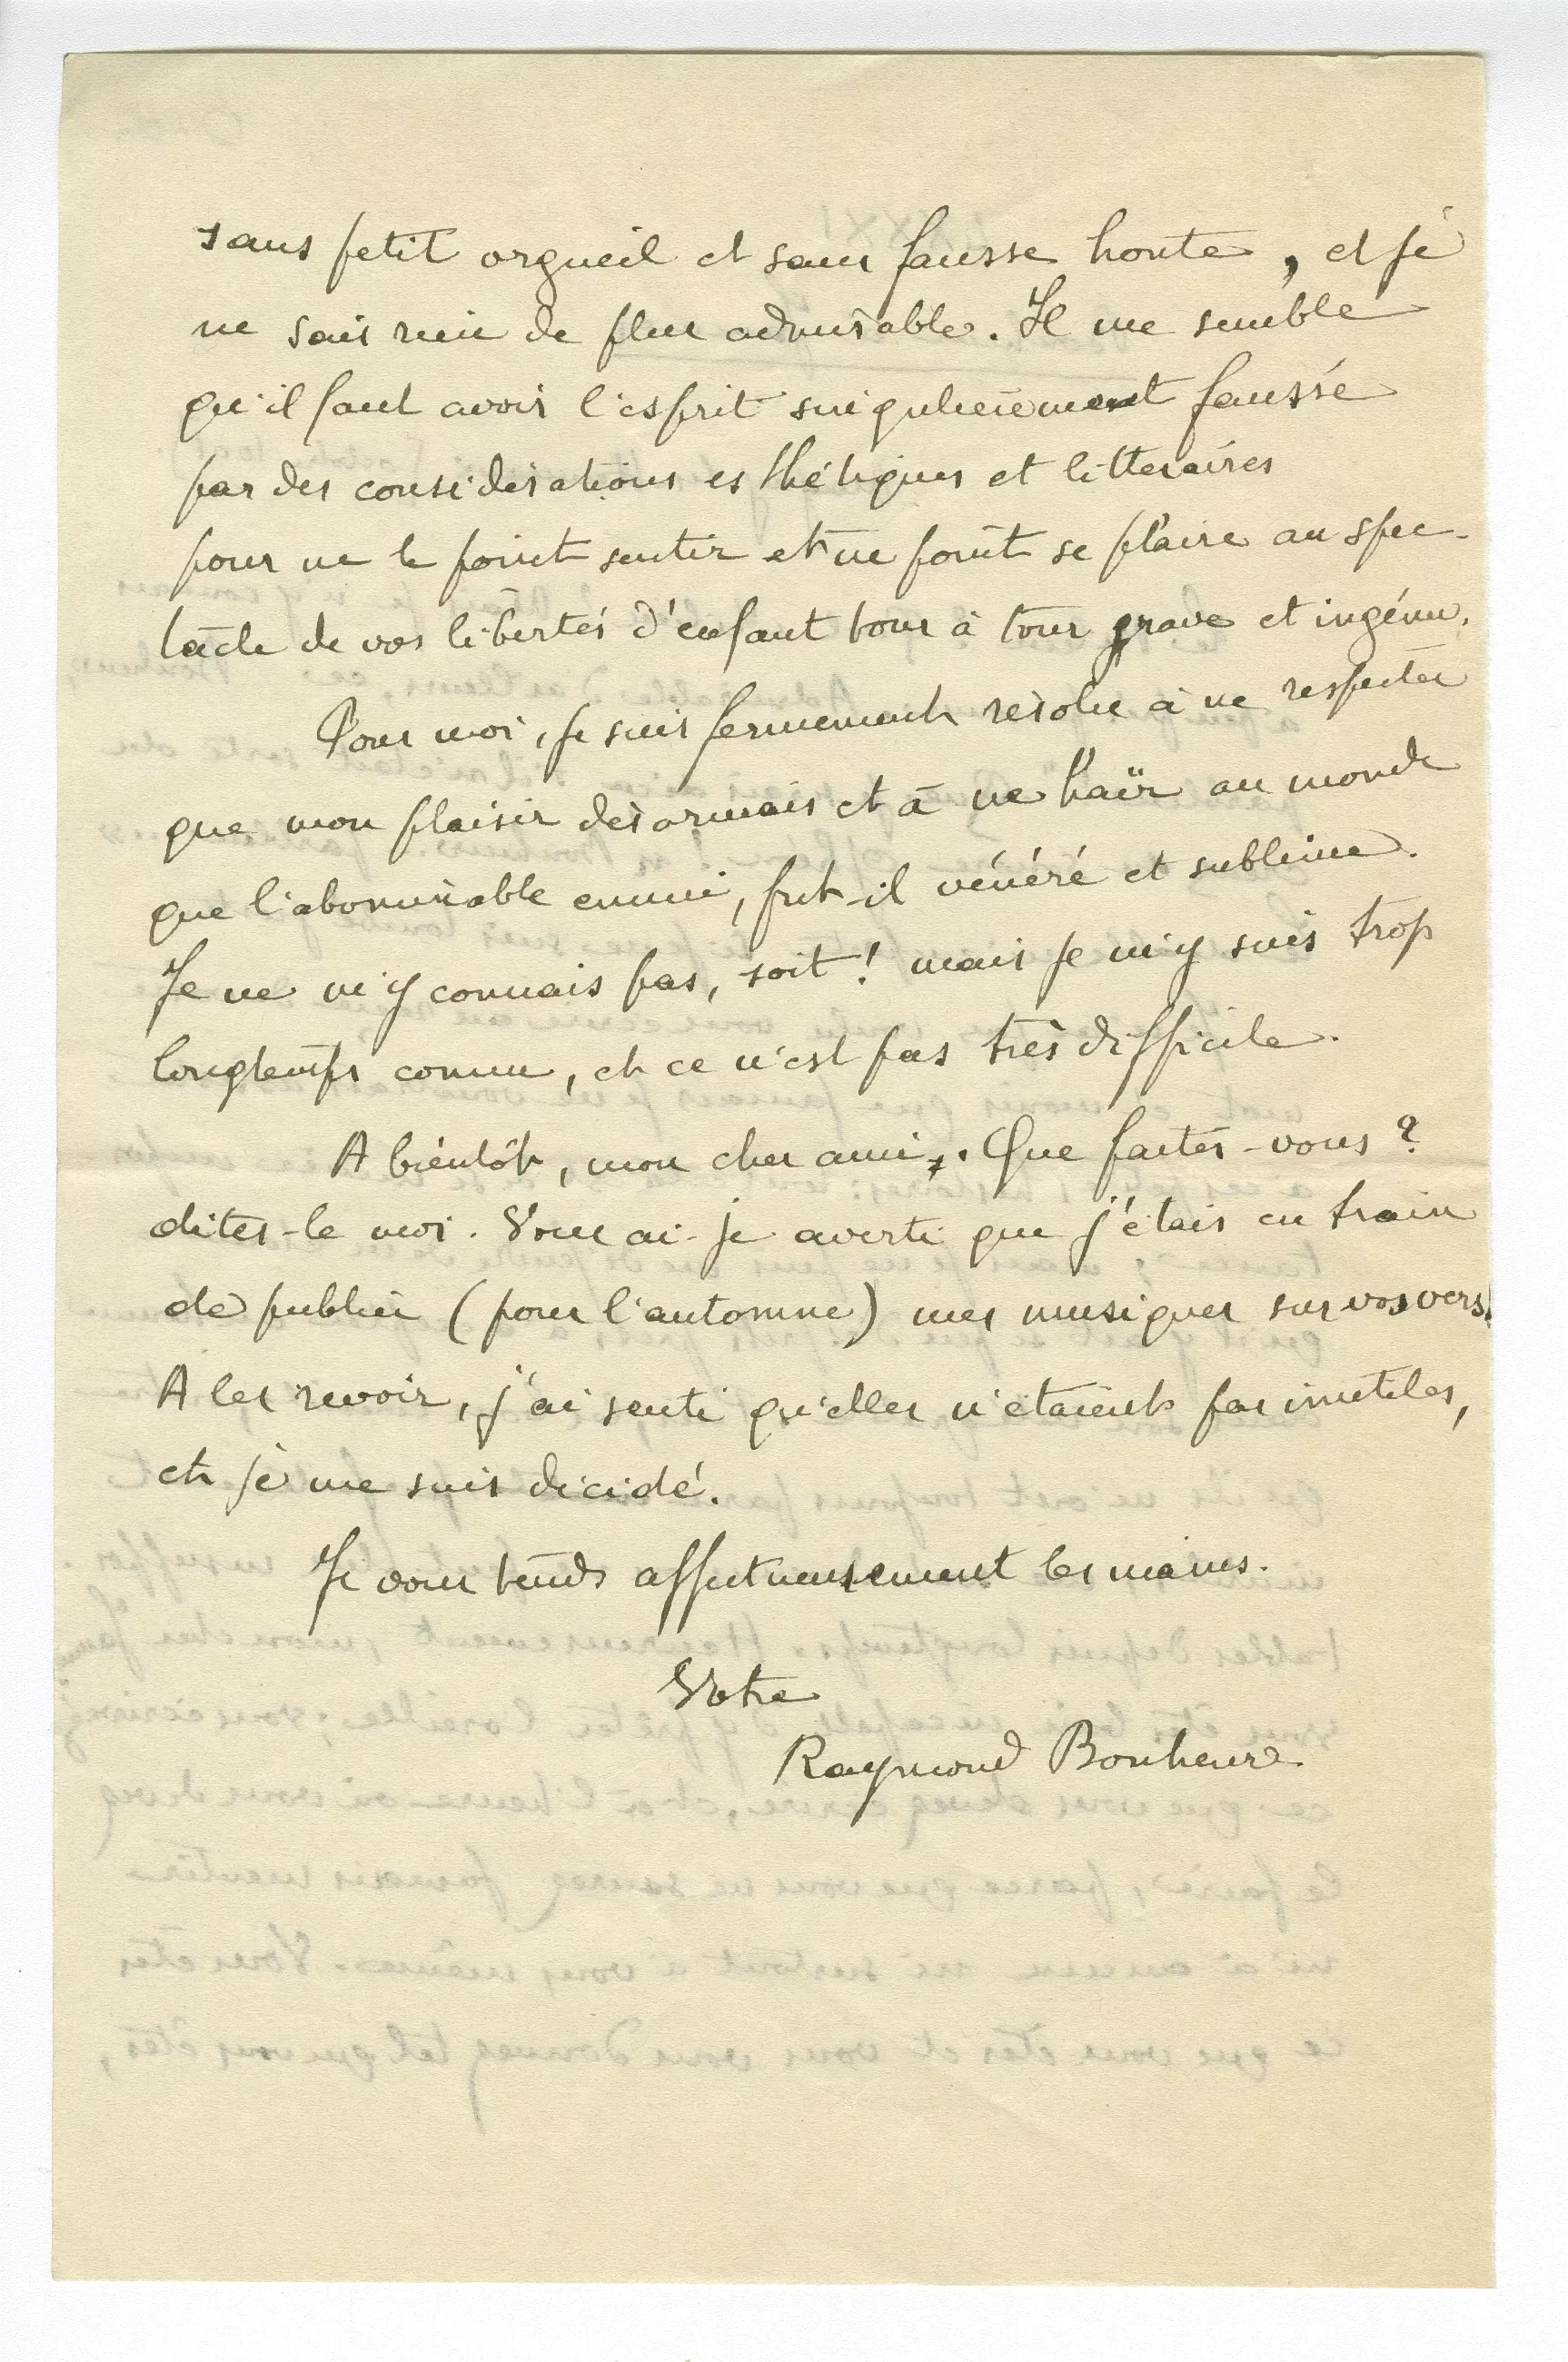 sans petit orgueil et sans fausse honte, et je
ne sais rien de plus admirable. Il me semble
qu'il faut avoir l'esprit singulièrement faussé
par des considérations esthétiques et litteraires
pour ne le point sentir et ne point se plaire au spec-
tacle de vos libertés d'enfant tour à tour grave et ingénu.
Pour moi, je suis fermement résolu à ne respecter
que mon plaisir désormais et à ne haïr au monde
que l'abominable ennui, fut-il vénéré et sublime.
Je ne m'y connais pas, soit! mais je m'y suis trop
longtemps connu, et ce n'est pas très difficile.
A bientôt, mon cher ami. Que faites-vous ?
dites-le moi. Vous ai-je averti que j'étais en train
de publier (pour l'automne) mes musiques sur vos vers.
A les revoir, j'ai senti qu'elles n'étaient pas inutiles,
et je me suis décidé.
Je vous tends affectueusement les mains.
Votre
Raymond Bonheur